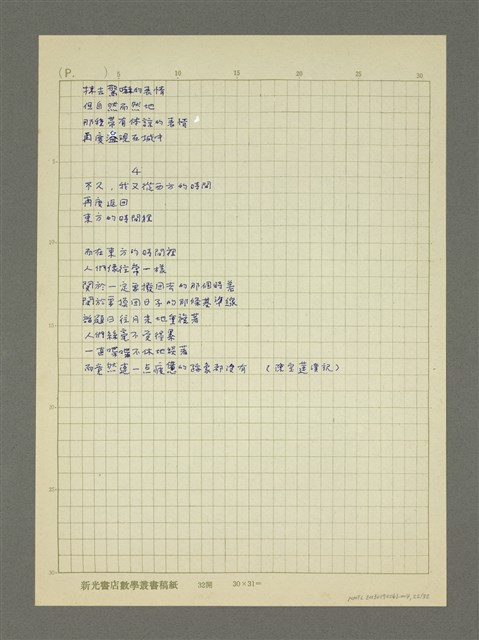 (P.      )
5 10 15 20 25 30
抹去驚嚇的表情
但自然而然地
那種帶有体諒的表情
再度浮現在城中
4
不久，我又從西方的時間
再度返回
東方的時間裡
而在東方的時間裡
人們像往常一樣
關於一定要換回有的那個時差
關於要換回日子的那條基準線
話題日往月來地重複著
人們絲毫不受拖累
一直喋喋不休地談著
而竟然連一点疲憊的跡象都沒有 （陳
5
10
15
20
25
30
新光書店數學叢書稿紙 32開 30×31＝